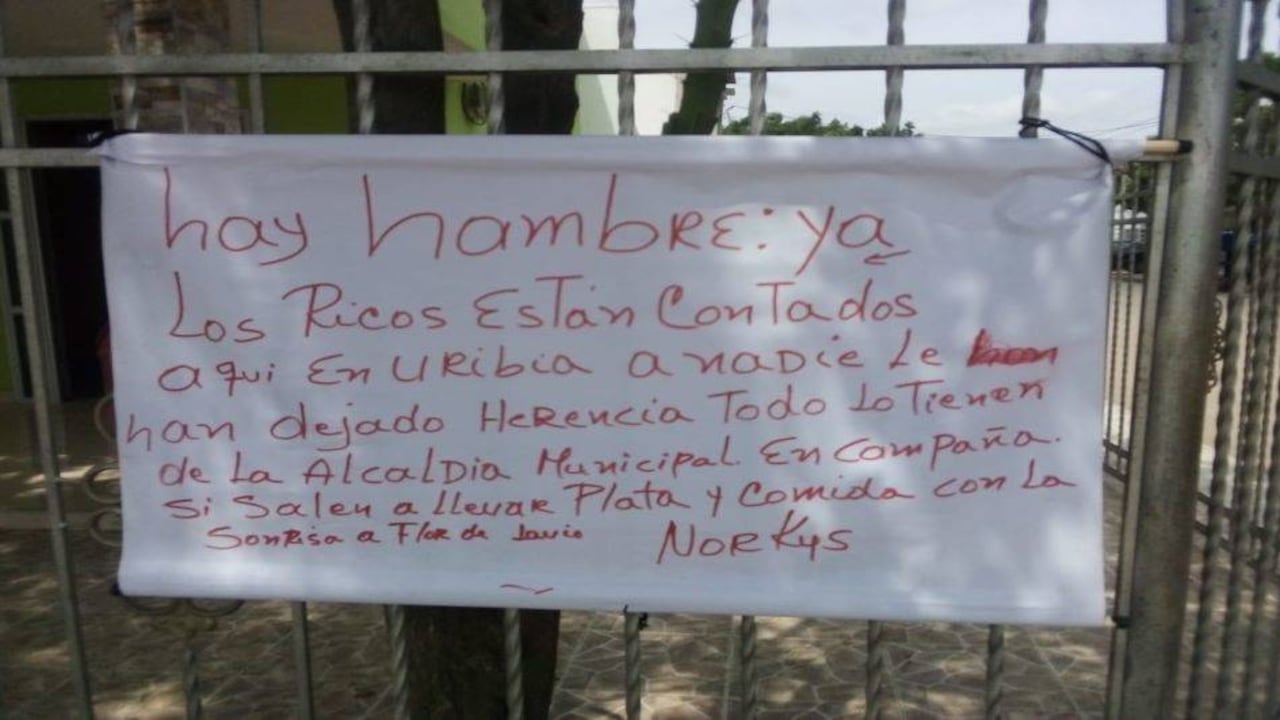 hay hambRE: ya
Los Ricos EsTán ConTados
aqui En URibia a naDie Le
han dejado HeRencia Todo LoTienen
de La AlcalDia Municipal. En Compaña.
Si Salen a LLevaR Plata y Comida con La
SonRisa a FloR de Lavio NoRKys